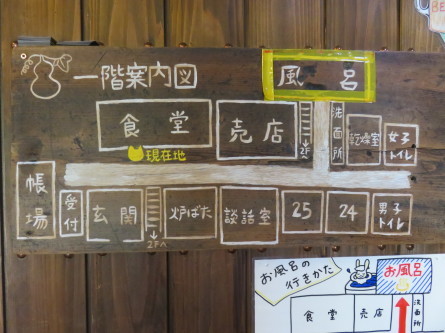 一階案内図
風呂
食堂
売店
2Fへ
洗面所
乾燥室
女子
トイレ
現在地
帳場
受付
玄関
2Fへ
炉ばた
談話室
25
24
男子
トイレ
お風呂の
行きかた
お風呂
食堂
売店
洗面所